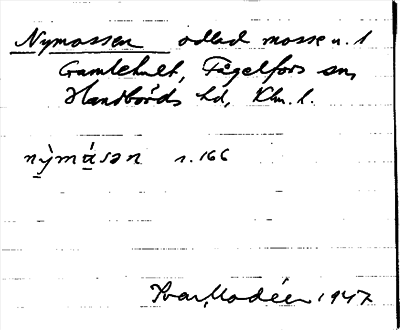 Nymossen odlad mosse u. 1
Gamlehult, Fågelfors sn,
Handbörds hd, Klm. l.
nỳmåsən s. 166
Ivar Modéer 1947